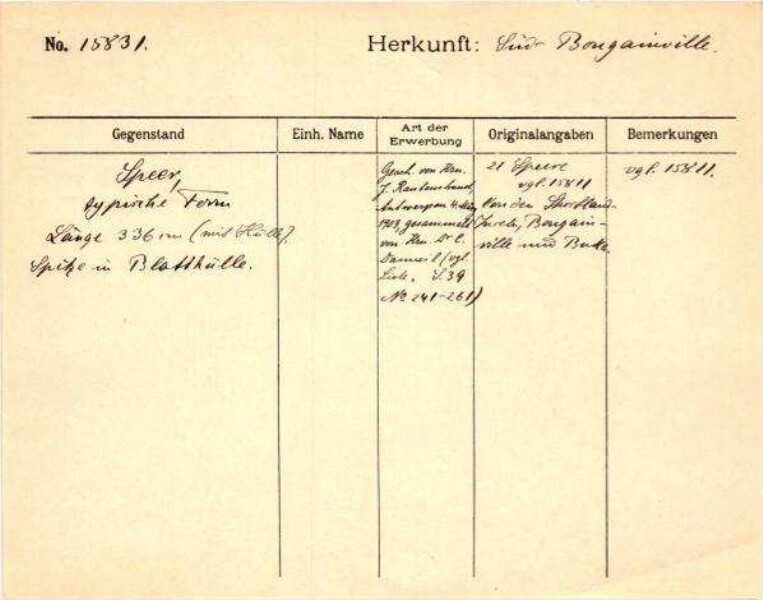 No. 15831.
Herkunft: Süd Bougainville.
Gegenstand
Einh. Name
Art der
Erwerbung
Originalangaben
Bemerkungen
Speer,
typische Form
Länge 336 cm (mit Hülle).
Spitze in Blatthülle.
Gesch. von Hrn.
J. Rautenstrauch,
Antwerpen 4. März
1909, gesammelt
von Hrn. Dr. C.
(vgl.
Liste, S. 39
No 241-261)
21 Speere
vgl. 15811
Von den Shortland-
Inseln, Bougain-
ville und Buka.
vgl. 15811.